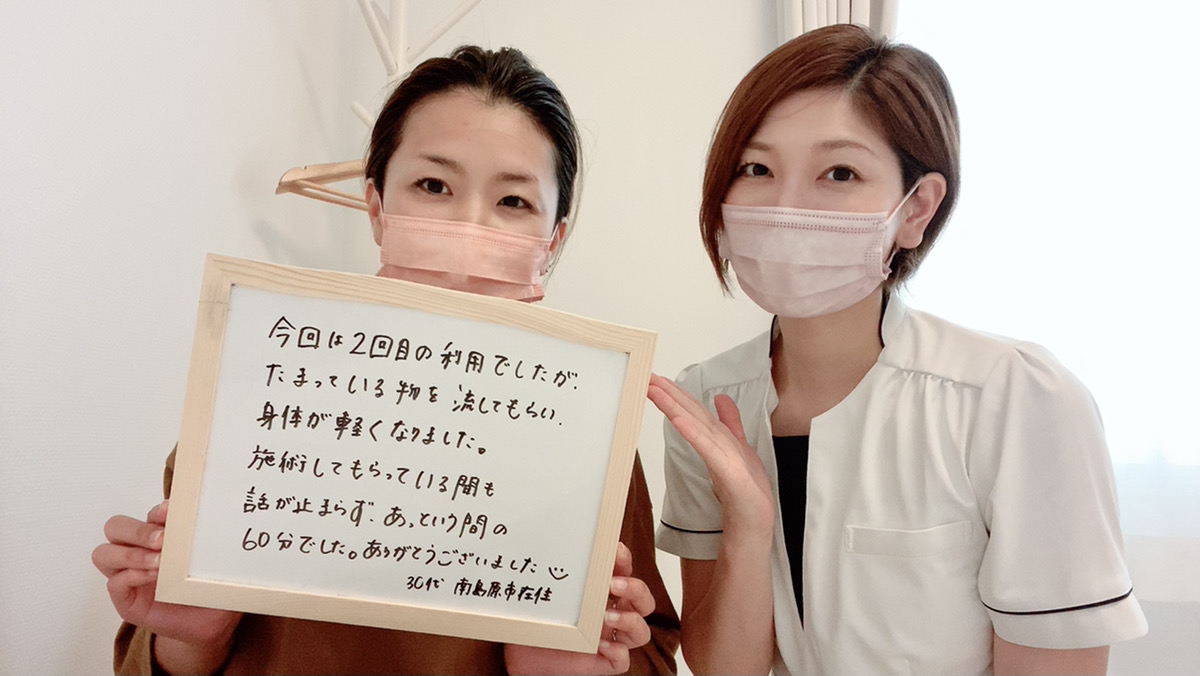 今回は2回目の利用でしたが、
たまっている物を流してもらい、
身体が軽くなりました。
施術してもらっている間も
話が止まらず、あっという間の
60分でした。ありがとうございました
30代 南島原市在住